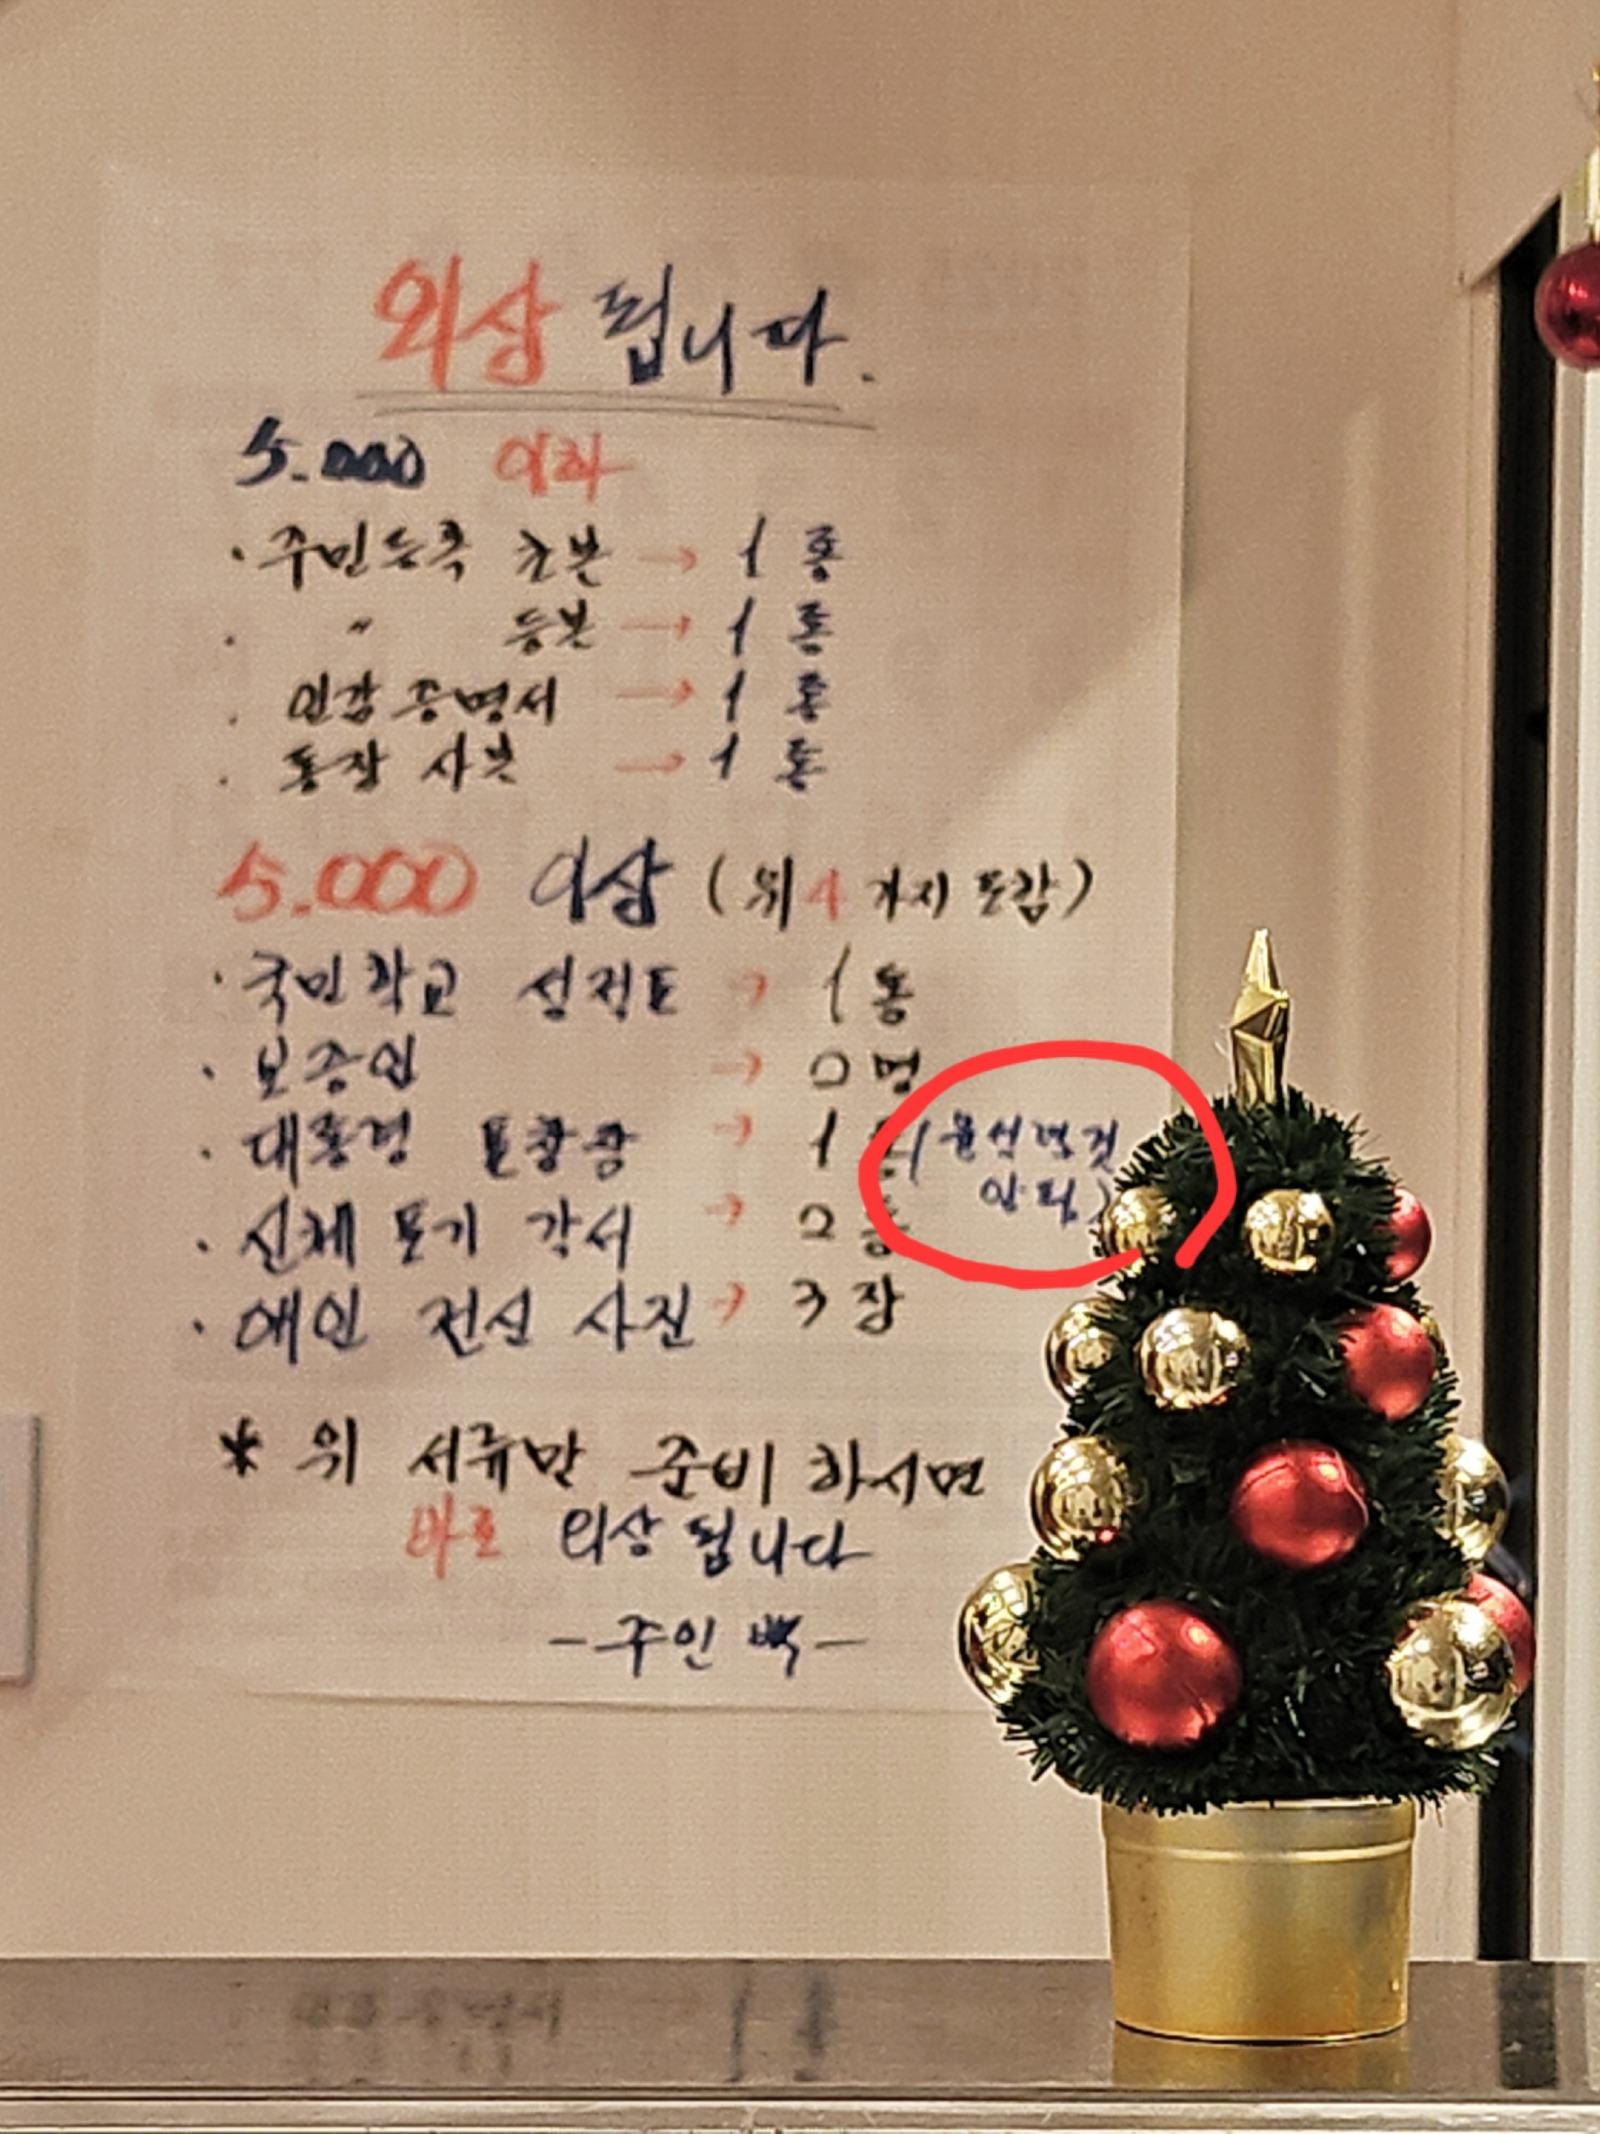 외상 됩니다.
5.000 이하
· 주민등록 초본 → 1 통
· 〃 등본 → 1 통
· 인감증명서 → 1 통
· 통장 사본 → 1 통
5.000 이상 (위 4 가지 포함)
· 국민학교 성적표 → 1 통
· 보증인 → 0 명
· 대통령 표창장 → 1 통 (윤석열것
안됨)
· 신체 포기 각서 → 2 통
· 애인 전신 사진 → 3 장
* 위 서류만 준비 하시면
바로 외상 됩니다
- 주인 백 -